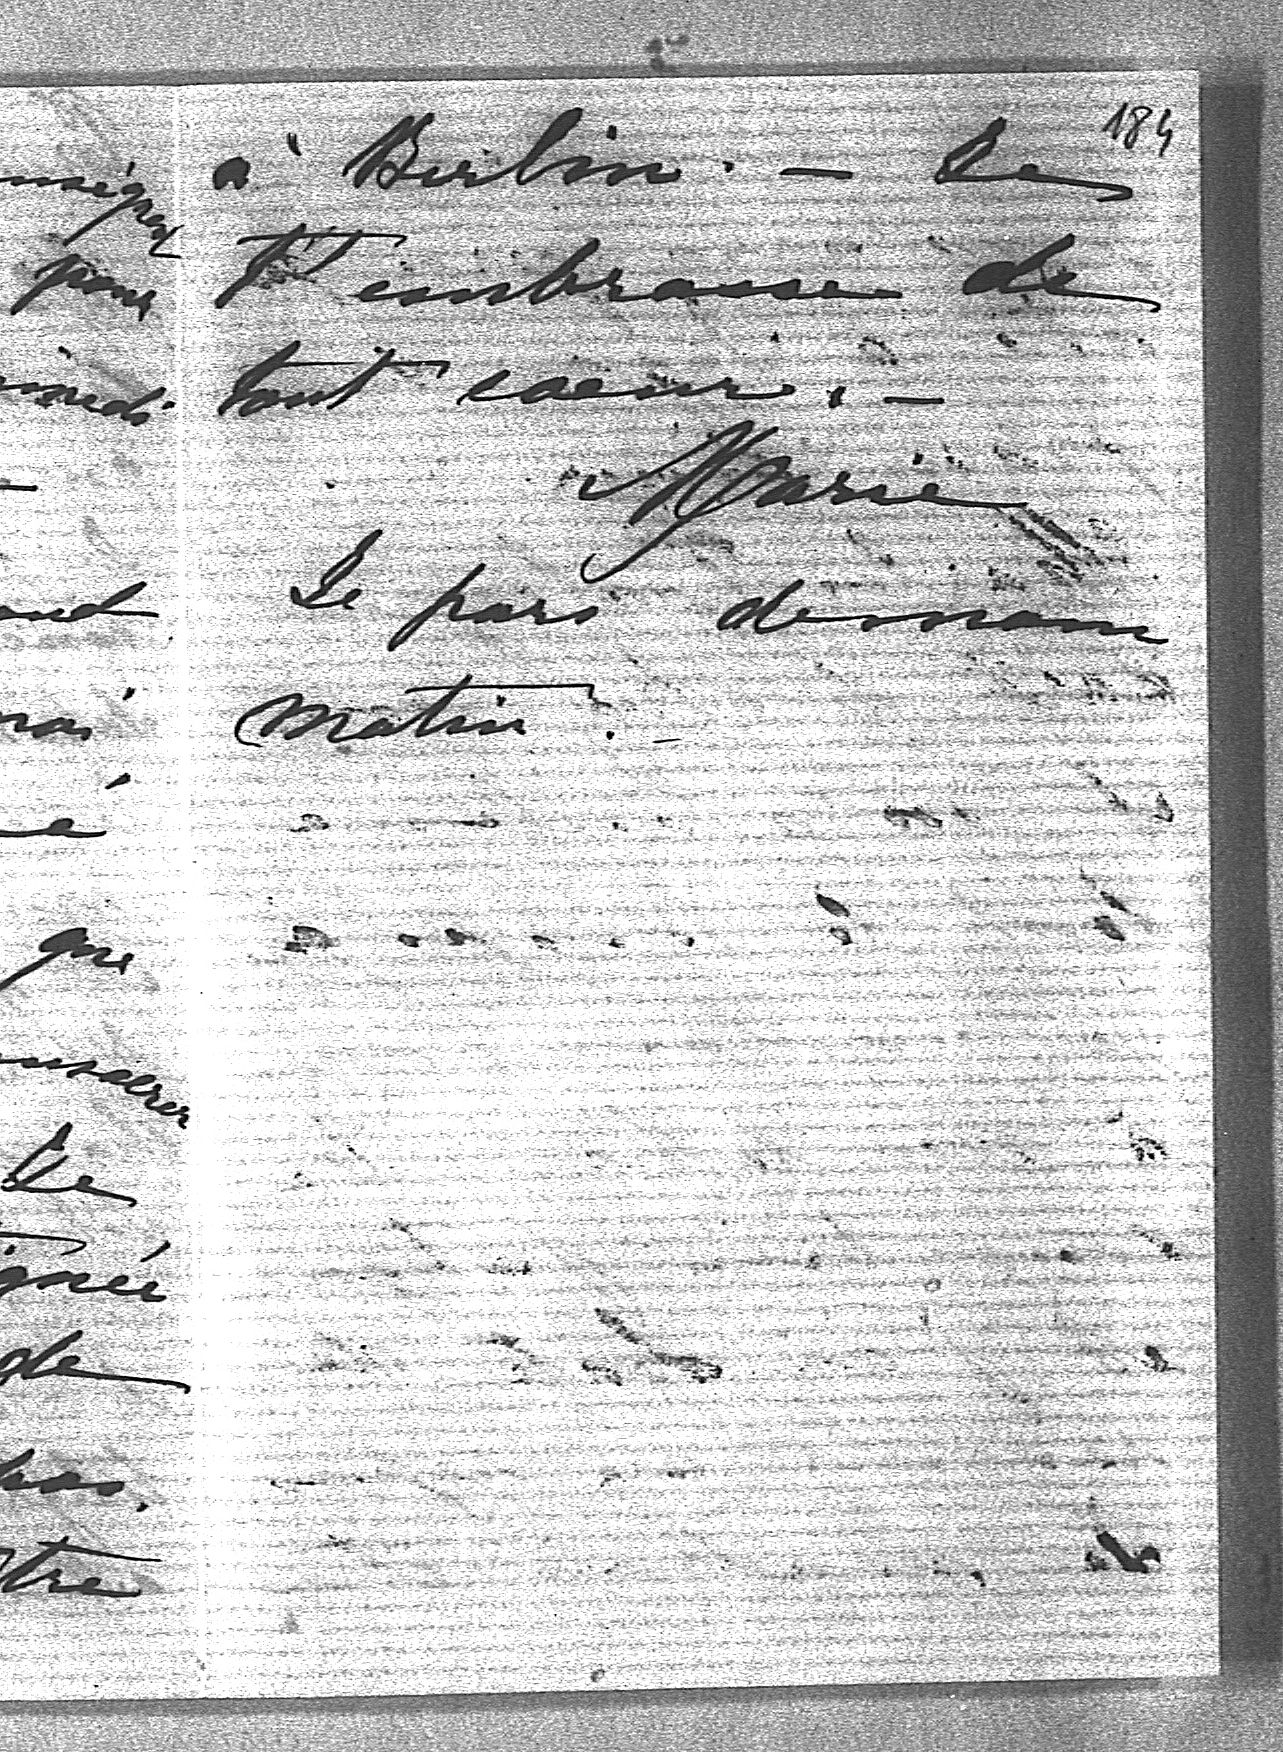 184
à Berlin. — Je
t'embrasse de
tout coeur. —
Marie
Je pars demain
matin. —
pour
que
Je
de